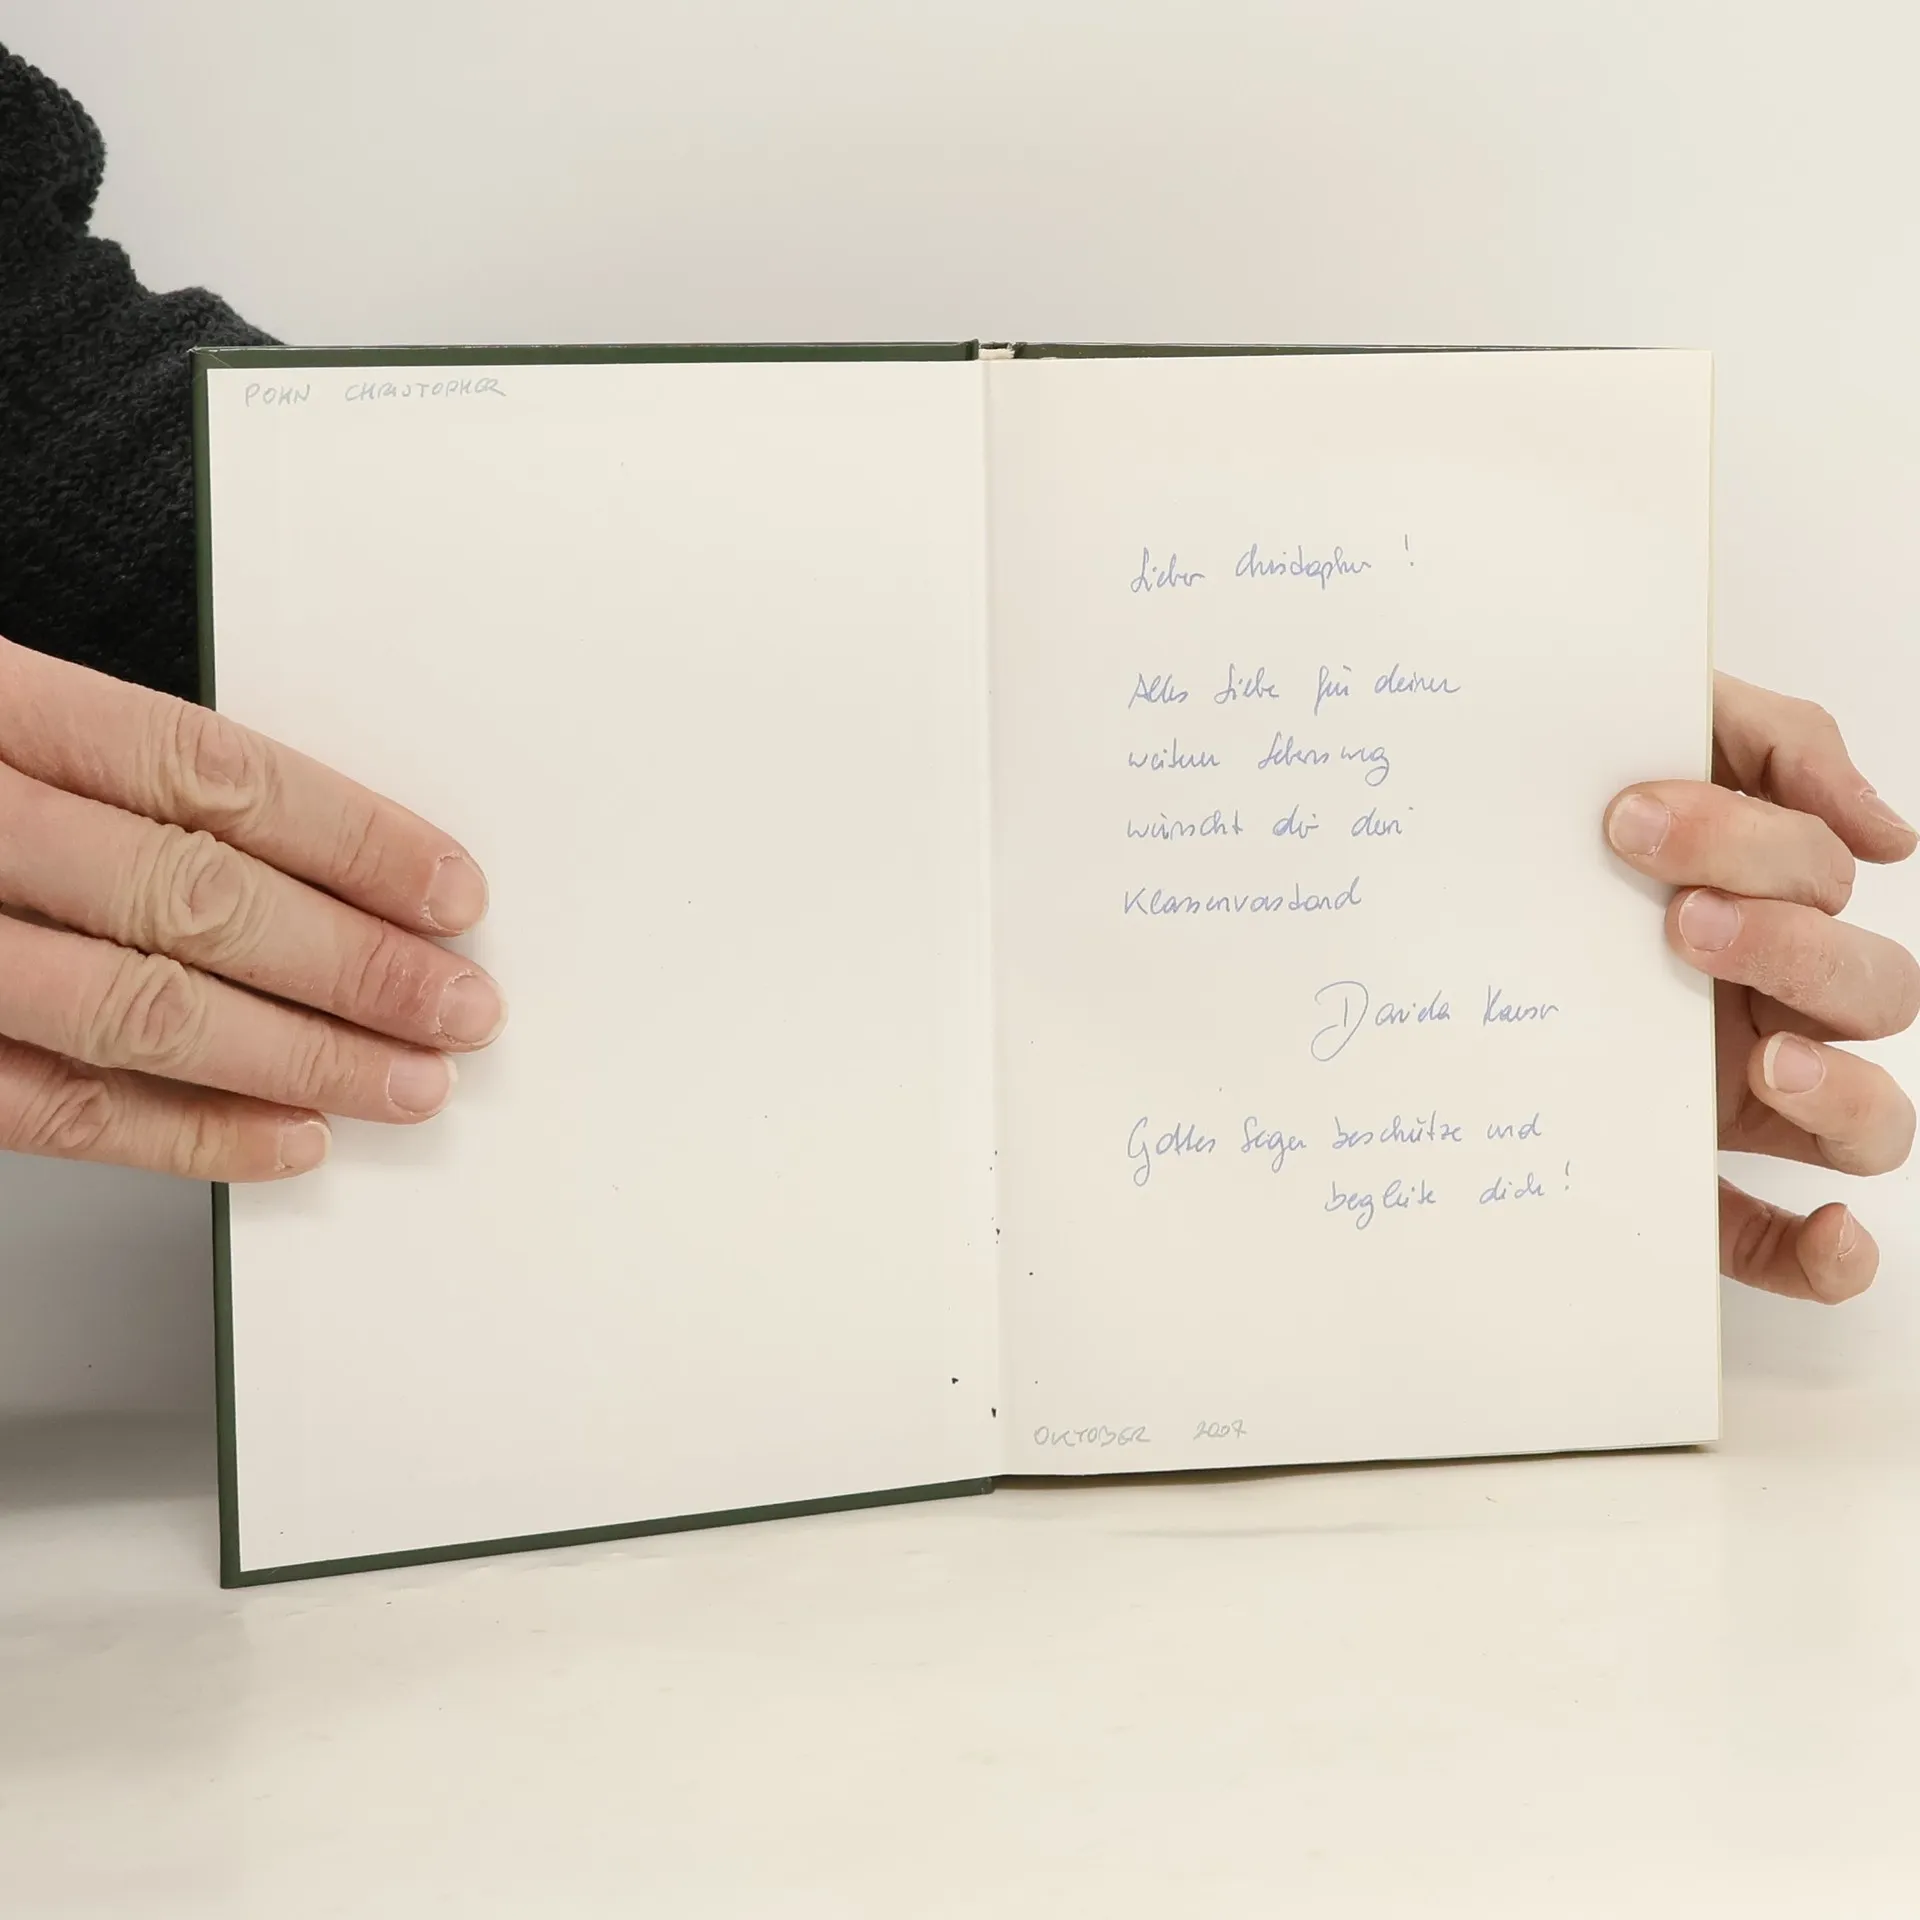 POHN CHRISTOPHER
Lieber Christopher !
Alles Liebe für deinen
weiteren Lebensweg
wünscht dir dein
Klassenvorstand
Daniela
Gottes Segen beschütze und
begleite dich !
OKTOBER 2007